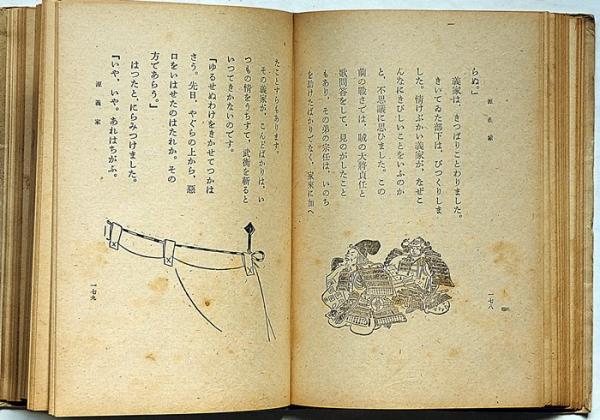 らぬ。」
義家は、きつぱりことわりました。
きいてゐた部下は、びつくりしま
した。情けぶかい義家が、なぜこ
んなにきびしいことをいふのか
と、不思議に思ひました。この
前の戰さでは、賊の大將貞任と
歌問答をして、見のがしたこと
もあり、その弟の宗任は、いのち
を助けたばかりでなく、家來に加へ
一七八
たことすらもあります。
その義家が、こんどばかりは、い
つもの情をうちすて、武衡を斬ると
いつてきかないのです。
『ゆるせぬわけをきかせてつかは
さう。先日、やぐらの上から、惡
口をいはせたのはたれか。その
方であらう。』
はつたと、にらみつけました。
『いや、いや。あれはちがふ。
源義家
一七九